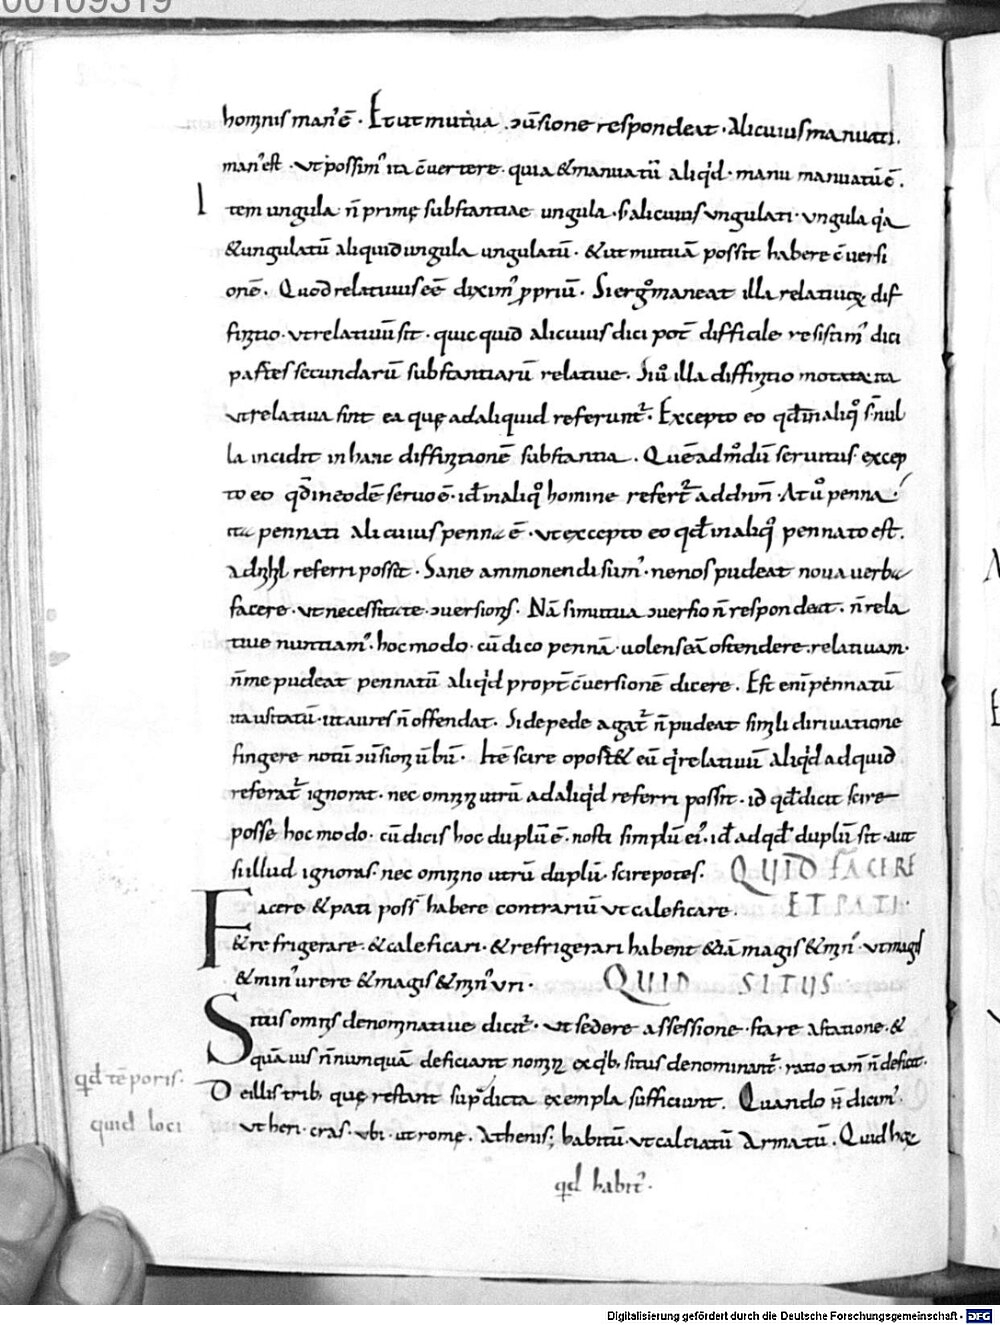 00109319
hominis man' ē. Et ut mutua ɔūsione respondeat. Alicuius manuati.
man' est. ut possim' ita c̄uertere. quia & manuatū aliq'd. manu manuatū ē.
Item ungula n̄ primę substantiae ungula. s; alicuius ungulati. ungula q'a
& ungulatū aliquid ungula ungulatū. & ut mutuā possit habere c̄uersi
onē. Quod relatiuis eē diximʼ ꝓpriū. Si ergo maneat illa relatiuę dif
finitio. ut relatiuū sit. quicquid alicuius dici potē difficile resistimʼ dici
partes secundarū substantiarū relatiue. Si ů illa diffinitio motata: ita
ut relatiua sint ea quę ad aliquid referunt. Excepto eo qđ in aliqͦ s̄ nul
la incidit in hanc diffinitionē substantia. Quē admͦdū seruitus. excep
to eo qđ in eodē seruo ē. id; in aliqͦ homine refert ad dn̄m. At ů penna
ita pennati alicuius penna ē. ut excepto eo qđ in aliqͦ pennato est.
ad nihil referri possit. Sane ammonendi sumʼ. ne nos pudeat noua uerba
facere. ut necessitate ɔuersionis. Nā si mutua ɔuersio n̄ respondeat. n̄ rela
tiue nuntiamʼ. hoc modo. cū dico pennā. uolens eā ostendere relatiuam.
n̄ me pudeat pennatū aliq'd propt̄ c̄uersionē dicere. Est eni pennatū
ita usitatū. ut aures n̄ offendat. Si de pede agat n̄ pudeat simili diriuatione
fingere notū ɔūsioni ūbū. Itē scire oport& eū q' relatiuū aliq'd ad quid
referat ignorat. nec omnino utrū ad aliq'd referri possit. id qđ dicit scire
posse hoc modo. cū dicis hoc duplū ē. nosti simplū eiʼ. id; ad qđ duplū sit. aut
si illud ignoras. nec omnino utrū duplū sit scire potes. QUID FACERE
Facere & pati poss̄ habere contrariū ut caleficare. ET PATI.
& refrigerare. & caleficari. & refrigerari habent &iā magis & minʼ. ut magis
& minʼ urere & magis & minʼ uri. QUID SITUS
Situs omnis denominatiue dicit. ut sedere assessione. stare a statione. &
quāuis n̄numquā deficiant nomina ex qb; situs denominant. ratio tam̄ n̄ deficit.
qđ tēporis. De illis trib; quę restant sup̄dicta exempla sufficiunt. Quando n̄ dicimʼ.
quid loci ut heri. cras. ubi. ut romę. Athenis; habitū. ut calciatū Armatū. Quid hęc
qđ habitʼ.
Digitalisierung gefördert durch die Deutsche Forschungsgemeinschaft - DFG